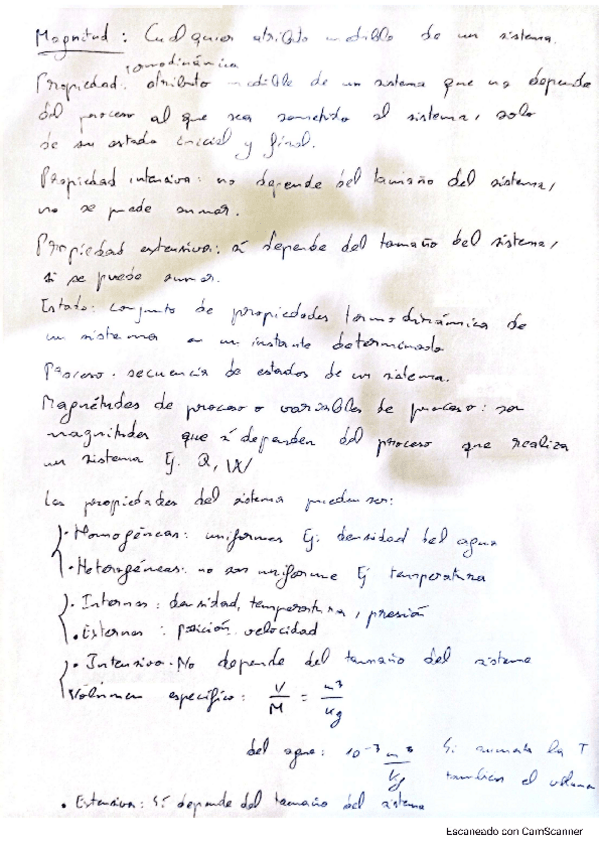 Magnitud: Cualquier atributo medible de un sistema.
termodinámica
Propiedad. atributo medible de un sistema que no depende
del proceso al que sea sometido el sistema, solo
de su estado inicial y final.
Propiedad intensiva: no depende del tamaño del sistema,
no se puede sumar.
Propiedad extensiva: sí depende del tamaño del sistema,
si se puede sumar.
Estado: conjunto de propiedades termodinámica de
un sistema en un instante determinado
Proceso. secuencia de estados de un sistema.
Magnitudes de proceso o variables de proceso: son
magnitudes que sí dependen del proceso que realiza
un sistema Ej. Q, W
Las propiedades del sistema pueden ser:
• Homogéneas: uniformes Ej. densidad del agua
• Heterogéneas: no son uniforme Ej temperatura
• Internas: densidad, temperatura, presión
• Externas: posición, velocidad
• Intensiva. No depende del tamaño del sistema
Volumen específico: V/M = m³/kg
del agua: 10⁻³ m³/kg Si aumenta la T
también el volumen
• Extensiva: Sí depende del tamaño del sistema
Escaneado con CamScanner